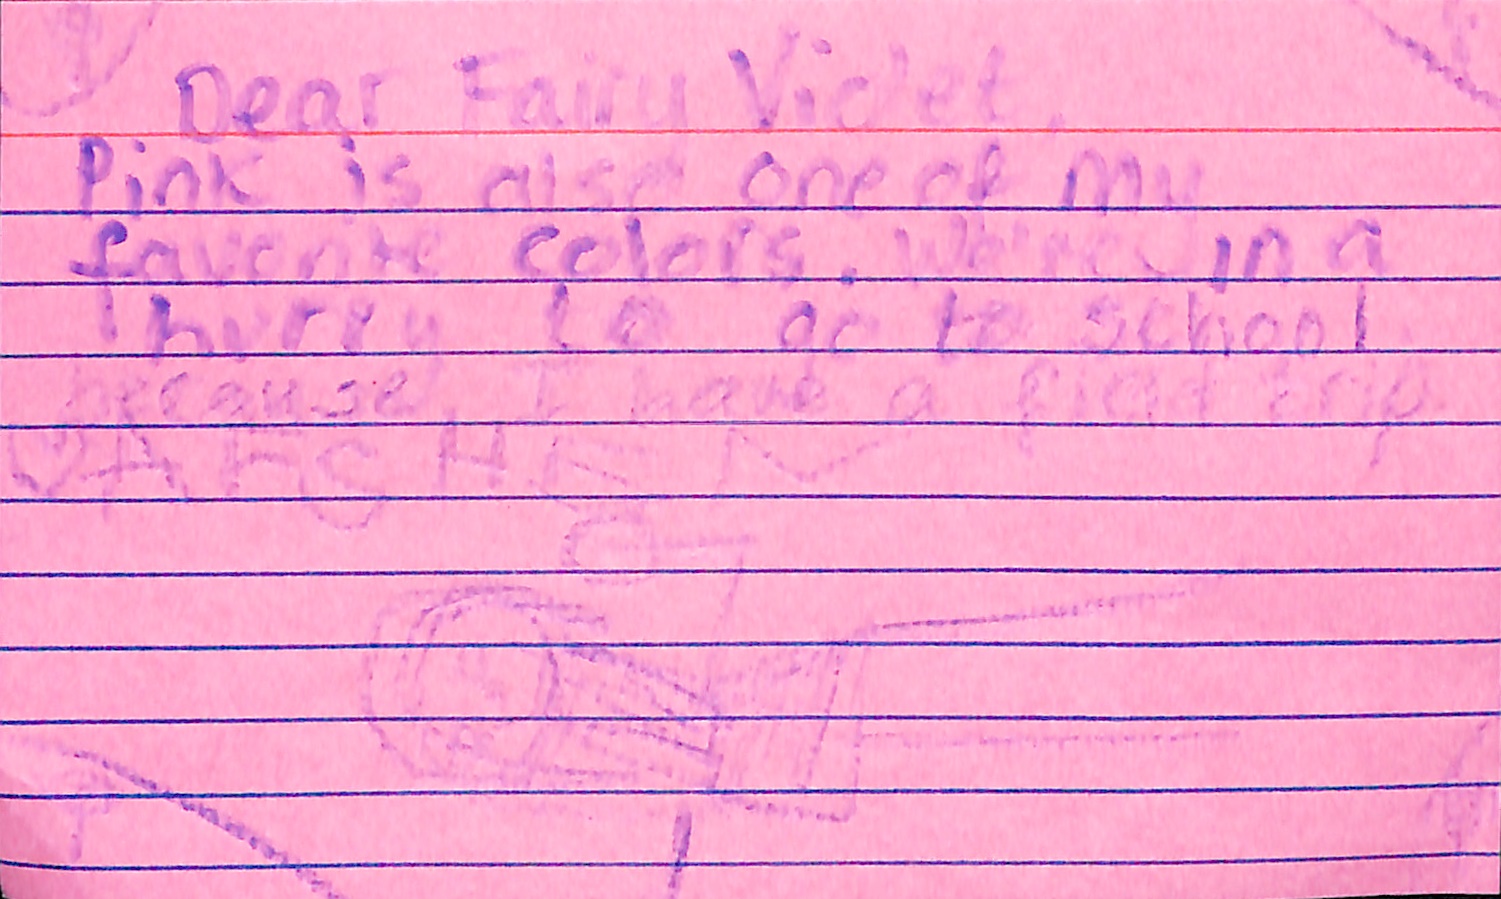 Dear Fairy Violet,
Pink is also one of my
favorite colors. We're in a
hurry to go to school
because I have a field trip